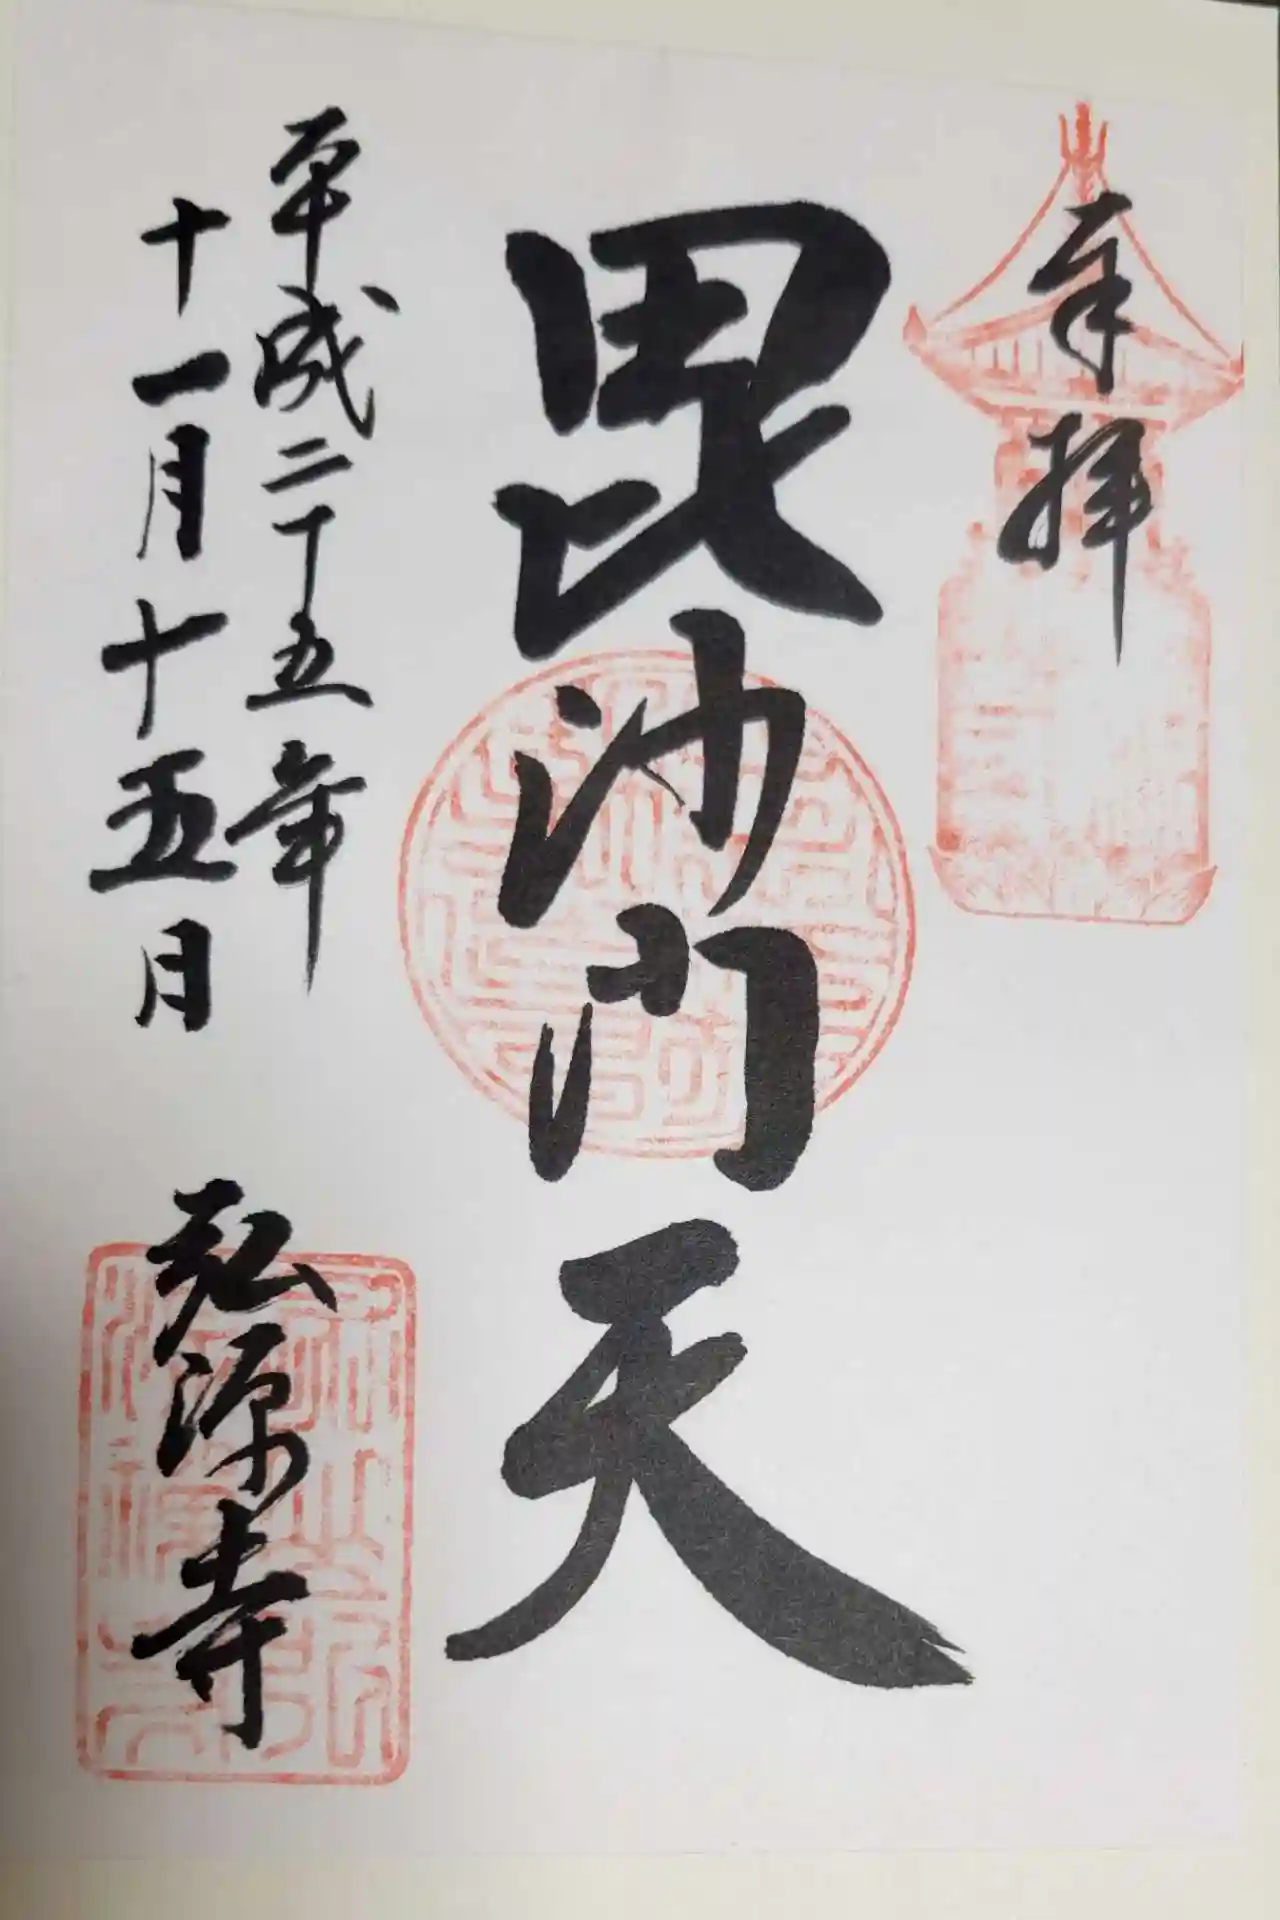 奉拝
毘沙門天
平成二十五年
十一月十五日
弘源寺